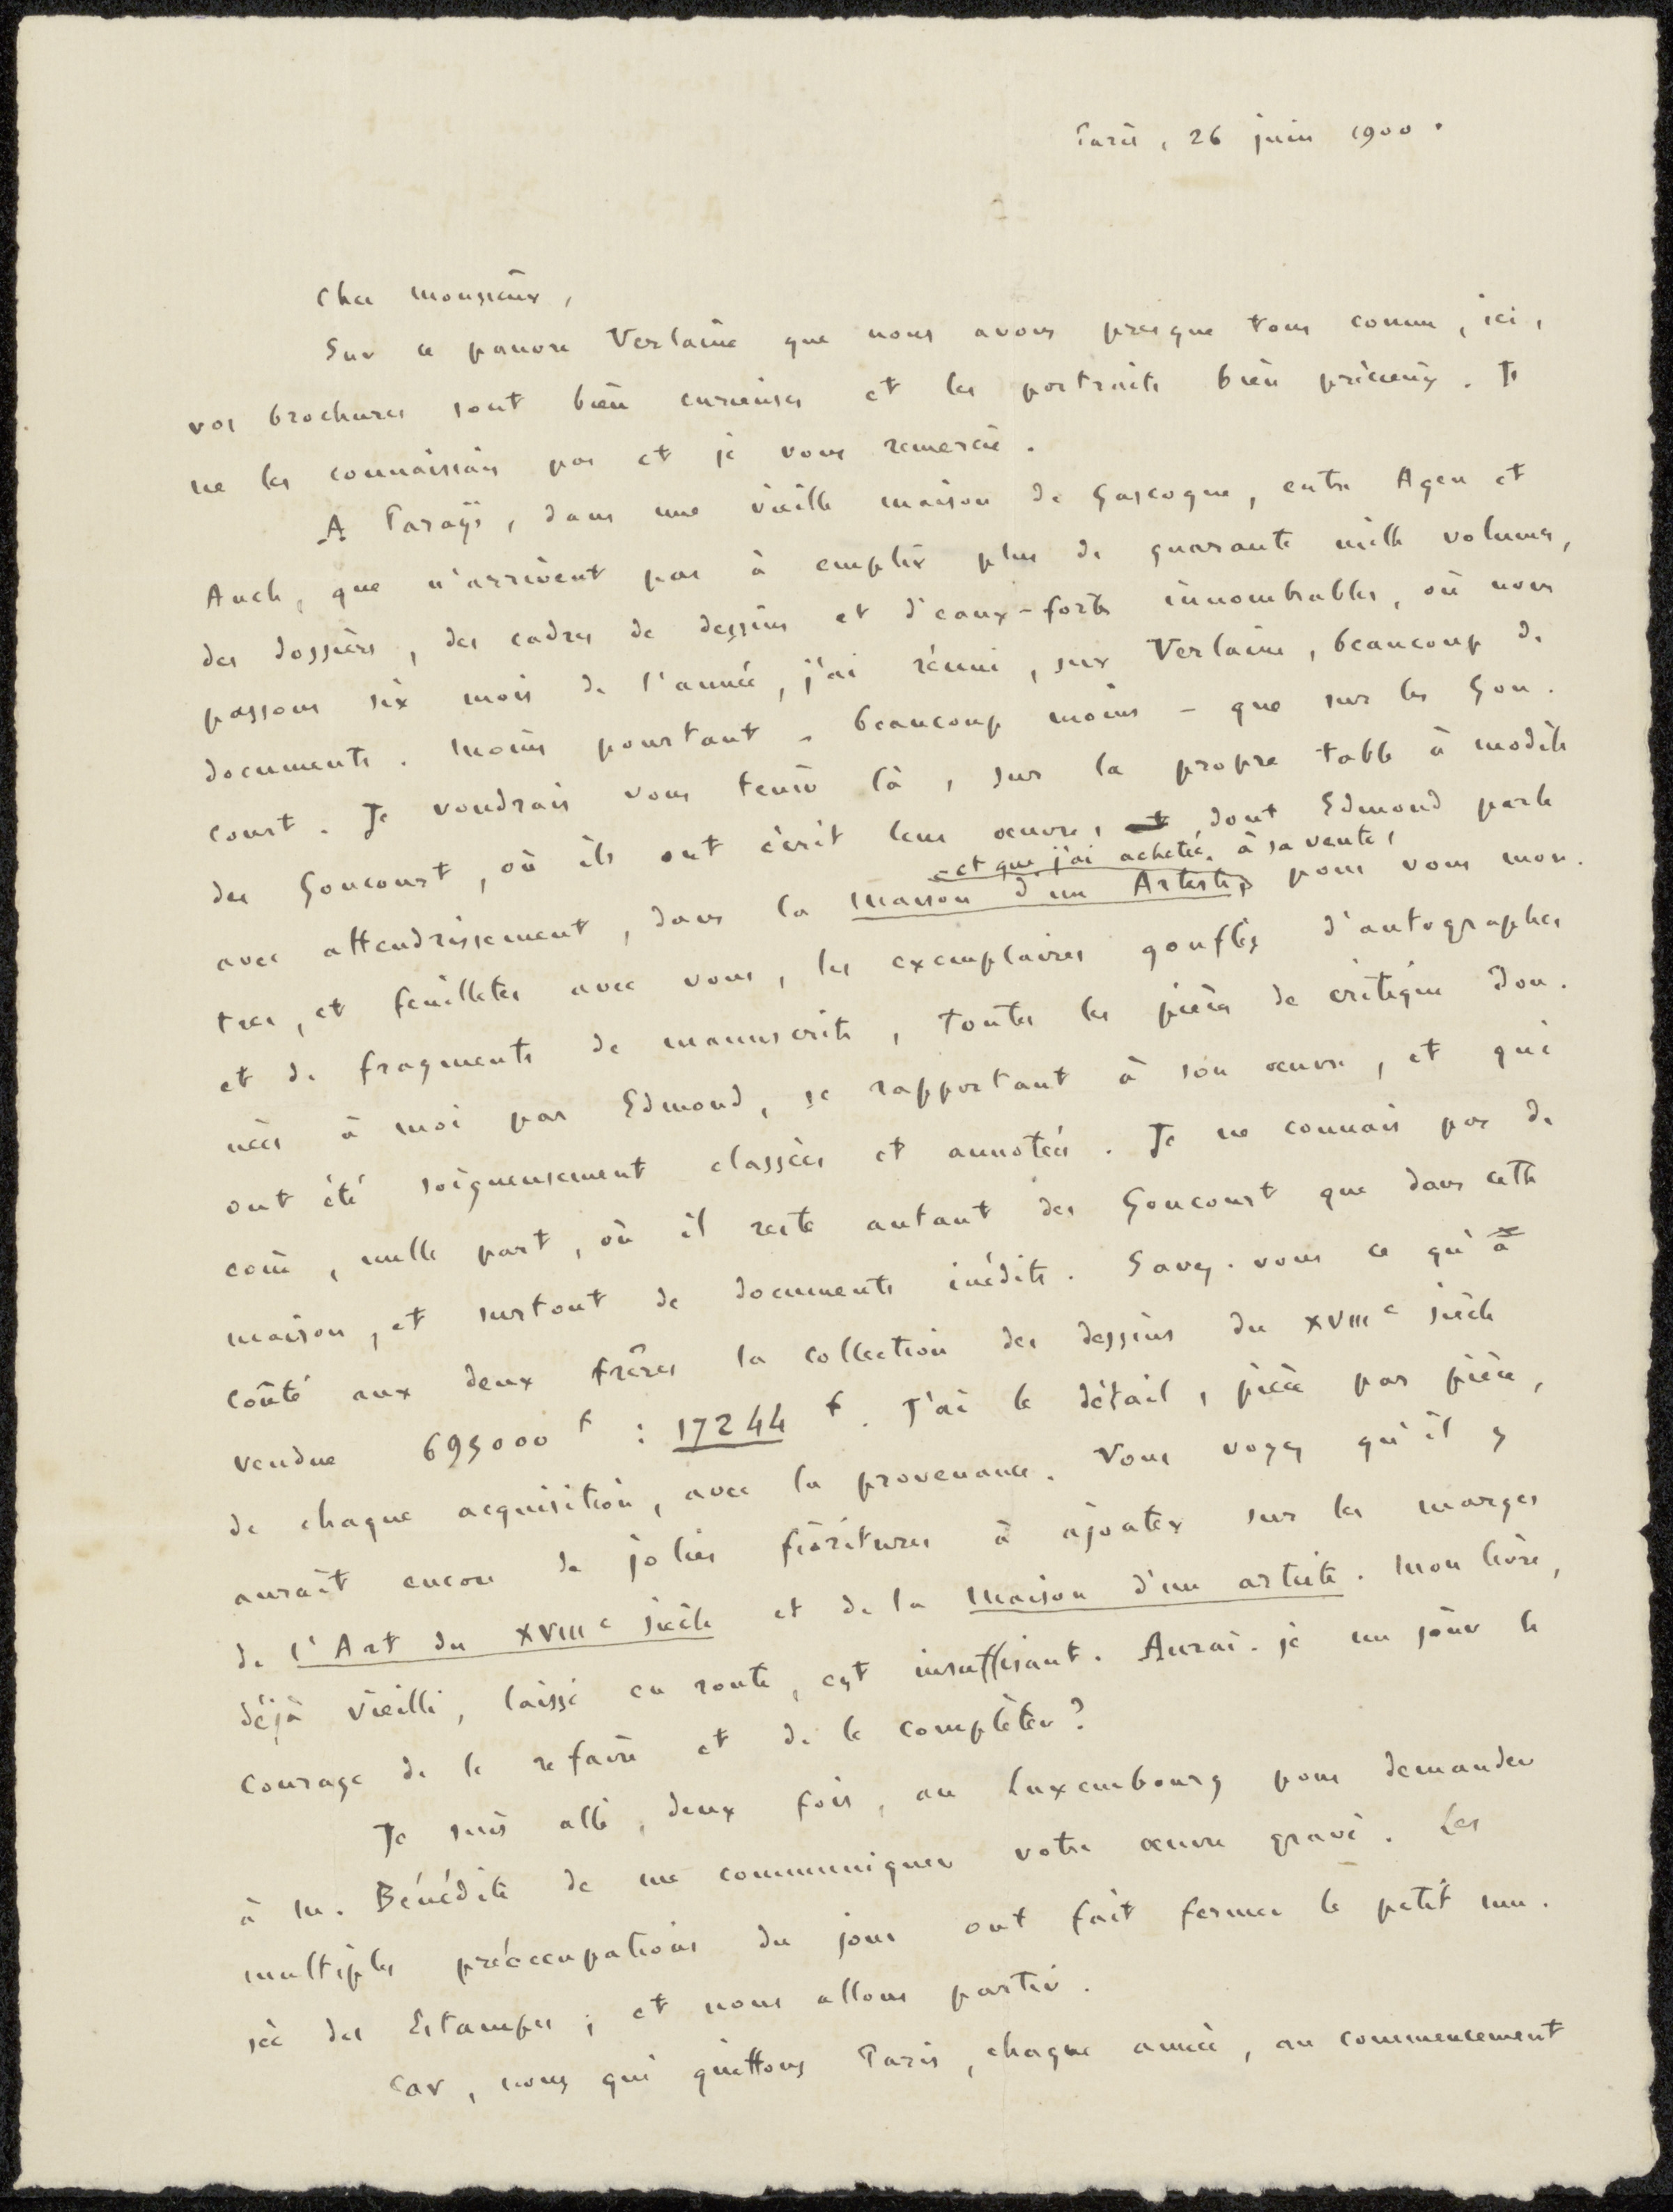 Paris, 26 juin 1900.
Cher Monsieur,
Sur ce pauvre Verlaine que nous avons presque tous connu, ici,
vos brochures sont bien curieuses et les portraits bien précieux. Je
ne les connaissais pas et je vous remercie.
A Parays, dans une vieille maison de Gascogne, entre Agen et
Auch, que n'arrivent pas à emplir plus de quarante mille volumes,
des dossiers, des cadres de dessins et d'eaux-fortes innombrables, où nous
passons six mois de l'année, j'ai réuni, sur Verlaine, beaucoup de
documents. Moins pourtant - beaucoup moins - que sur les Gon-
court. Je voudrais vous tenir là, sur la propre table à modèle
des Goncourt, où ils ont écrit leur œuvre, dont Edmond parle
- et que j'ai achetée, à sa vente,
avec attendrissement, dans la Maison d'un Artiste, pour vous mon-
trer, et feuilleter avec vous, les exemplaires gonflés d'autographes
et de fragments de manuscrits, toutes les pièces de critique don-
nées à moi par Edmond, se rapportant à son œuvre, et qui
ont été soigneusement classées et annotées. Je ne connais pas de
coin, nulle part, où il reste autant des Goncourt que dans cette
maison, et surtout de documents inédits. Savez-vous ce qu'a
coûté aux deux frères la collection des dessins du XVIIIe siècle
vendue 695000 f : 17244 f. J'ai le détail, pièce par pièce,
de chaque acquisition, avec la provenance. Vous voyez qu'il y
aurait encore de jolies fioritures à ajouter sur les marges
de l'Art du XVIIIe siècle et de la Maison d'un artiste. Mon livre,
déjà vieilli, laissé en route, est insuffisant. Aurai-je un jour le
courage de le refaire et de le compléter?
Je suis allé, deux fois, au Luxembourg pour demander
à M. Bénédite de me communiquer votre œuvre gravé. Les
multiples préoccupations du jour ont fait fermer le petit mu-
sée des Estampes ; et nous allons partir.
Car, nous qui quittons Paris, chaque année, au commencement